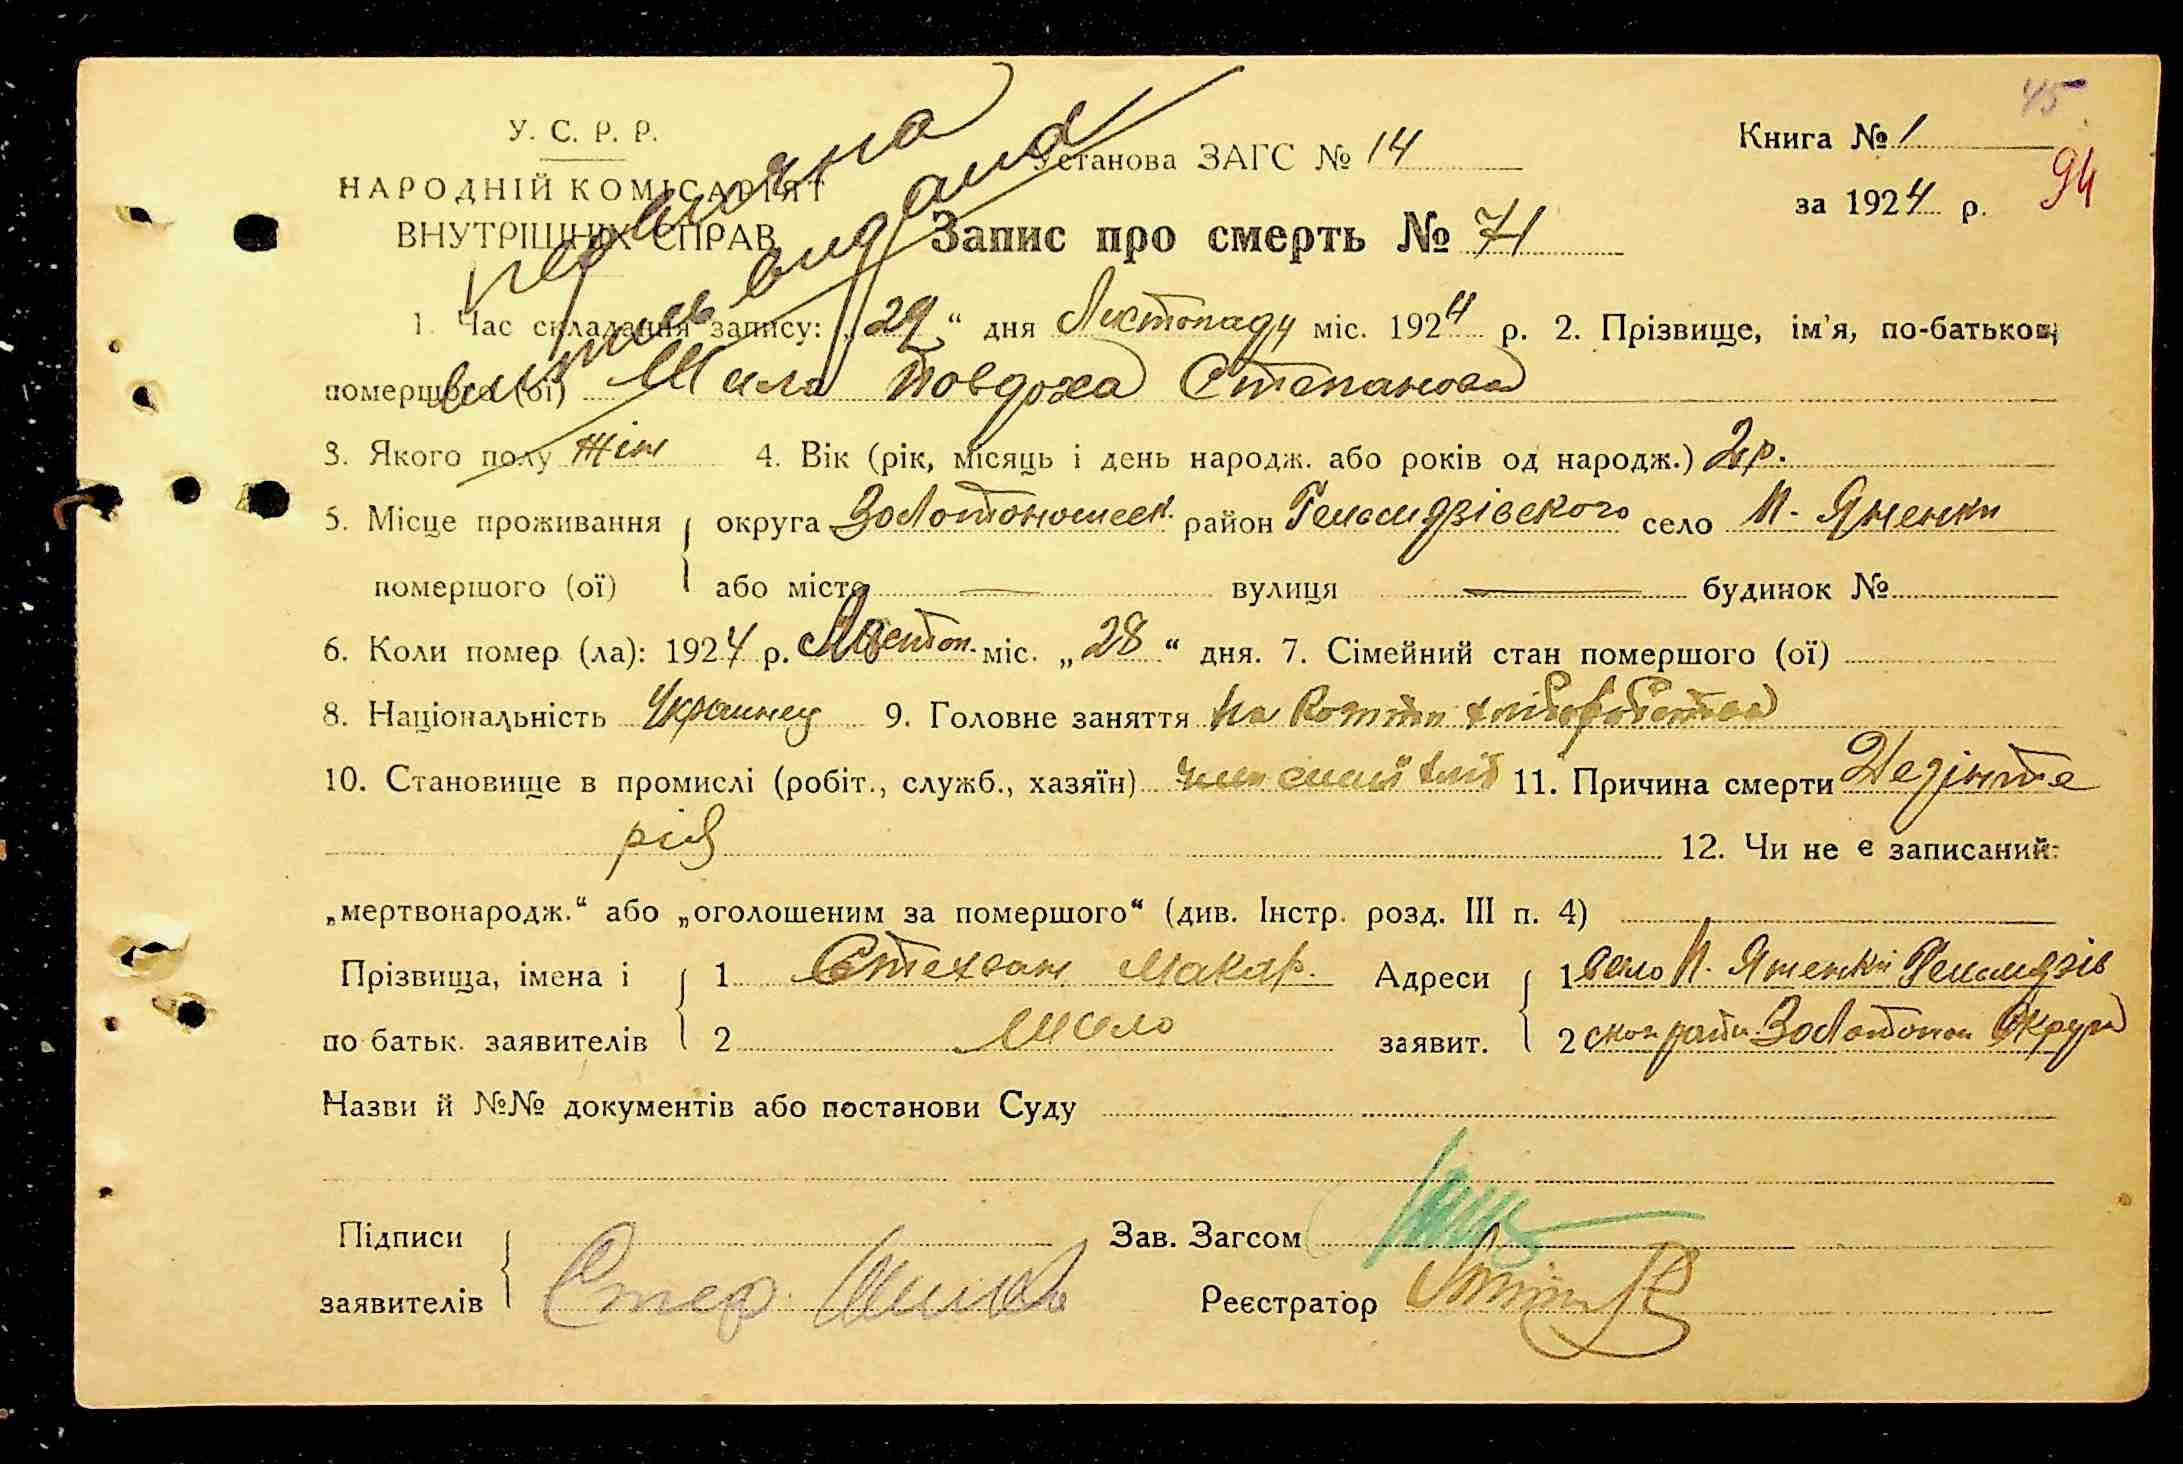 45
У. С. Р. Р.
НАРОДНІЙ КОМІСАРІЯТ
ВНУТРІШНІХ СПРАВ
Установа ЗАГС № 14
Книга № 1
за 1924 р.
94
Запис про смерть № 71
випись видана
1. Час складання запису: „29“ дня Листопаду міс. 1924 р. 2. Прізвище, ім'я, по-батькові
помершого (ої) Шило Повдоха Степанова
3. Якого полу жін 4. Вік (рік, місяць і день народж. або років од народж.) 2 р.
5. Місце проживання округа Золотоношськ. район Гельмязівского село П. Яненки
помершого (ої) або місто — вулиця — будинок №
6. Коли помер (ла): 1924 р. Листоп. міс. „28“ дня. 7. Сімейний стан помершого (ої)
8. Національність Украинец 9. Головне заняття на
10. Становище в промислі (робіт., служб., хазяїн) член 11. Причина смерти Дезінте
рія
12. Чи не є записаний:
„мертвонародж.“ або „оголошеним за помершого“ (див. Інстр. розд. III п. 4)
Прізвища, імена і 1 Степан Макар. Адреси 1 Село П. Яненки Гельмязів
по батьк. заявителів 2 Шило заявит. 2 ског райн. Золотонош Округи
Назви й №№ документів або постанови Суду
Підписи
Зав. Загсом
заявителів Шило
Реєстратор